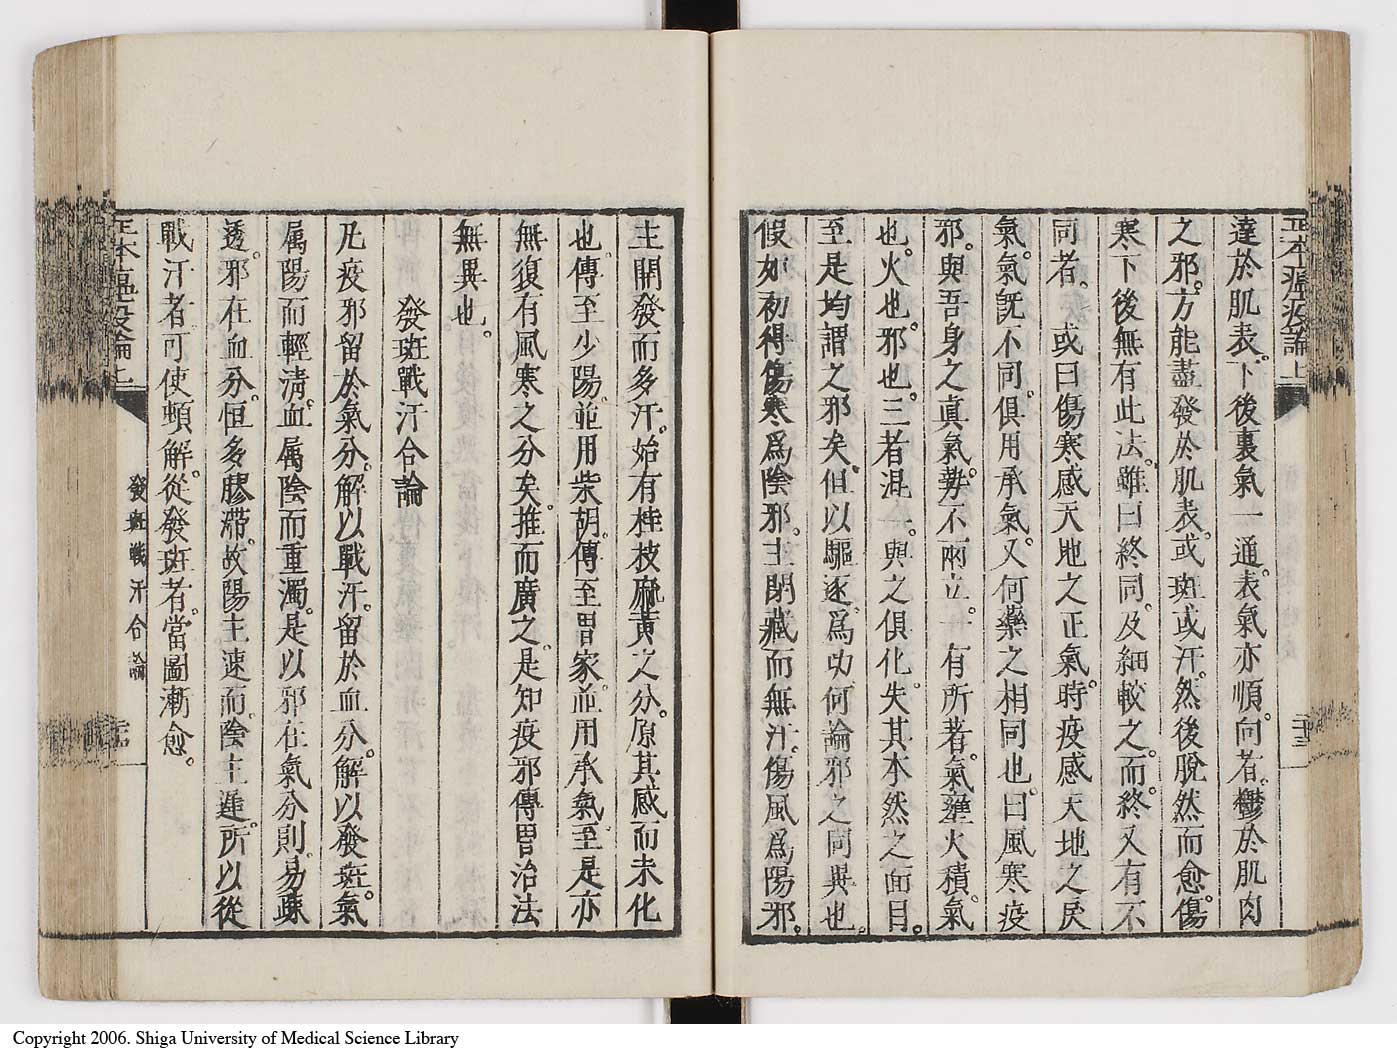 正本瘟疫論 上
二十三
達於肌表。下後裏氣一通。表氣亦順。向者。鬱於肌肉
之邪。方能盡發於肌表。或斑或汗。然後脫然而愈。傷
寒下後無有此法。雖曰終同。及細較之。而終又有不
同者。 或曰傷寒感天地之正氣。時疫感天地之戾
氣。氣旣不同。俱用承氣。又何藥之相同也。曰風寒疫
邪。與吾身之眞氣。勢不兩立。一有所著。氣壅火積。氣
也。火也。邪也。三者混一。與之俱化。失其本然之面目。
至是均謂之邪矣。但以驅逐爲功。何論邪之同異也。
假如初得傷寒爲陰邪。主閉藏而無汗。傷風爲陽邪。
主開發而多汗。始有桂枝麻黃之分。原其感而未化
也。傳至少陽。並用柴胡。傳至胃家。並用承氣。至是亦
無復有風寒之分矣。推而廣之。是知疫邪傳胃治法
無異也。
發斑戰汗合論
凡疫邪留於氣分。解以戰汗。留於血分。解以發斑。氣
属陽而輕清。血属陰而重濁。是以邪在氣分則易疎
透。邪在血分。恒多膠滯。故陽主速而陰主遲。所以從
戰汗者。可使頓解。從發斑者。當圖漸愈。
正本瘟疫論 上
發斑戰汗合論
二十四
Copyright 2006. Shiga University of Medical Science Library